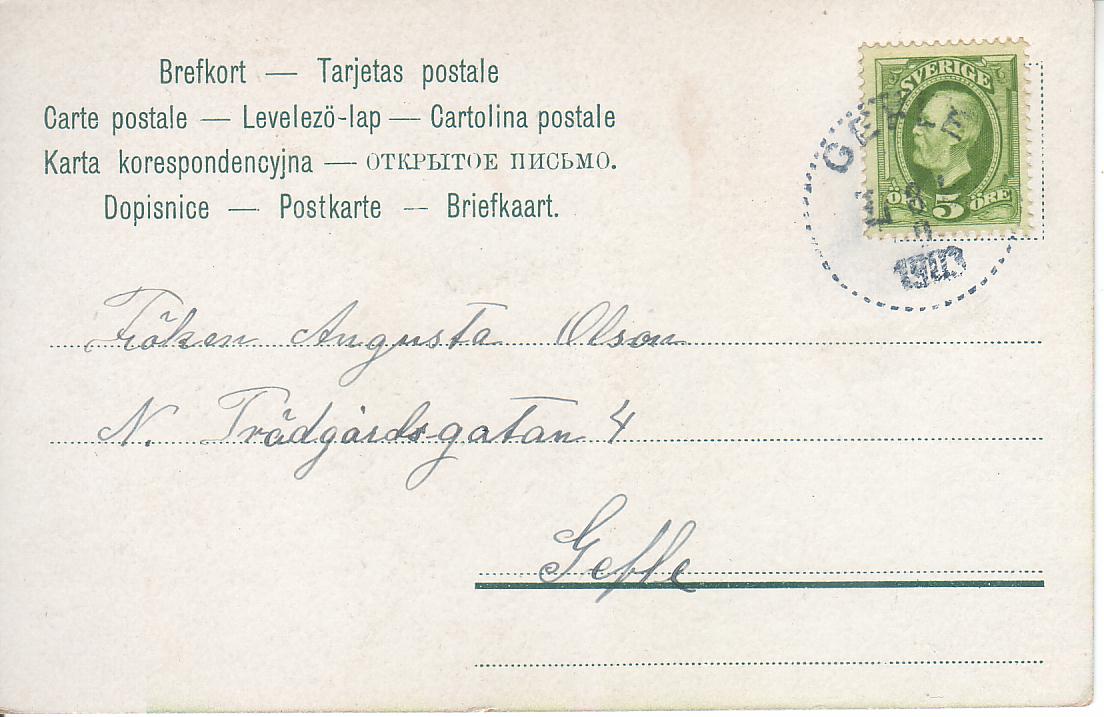 Brefkort — Tarjetas postale
Carte postale — Levelező-lap — Cartolina postale
Karta korespondencyjna — ОТКРЫТОЕ ПИСЬМО.
Dopisnice — Postkarte — Briefkaart.
SVERIGE
ÖRE 5 ÖRE
GEFLE
1903
Fröken Augusta Olson
N. Trädgårdsgatan 4
Gefle